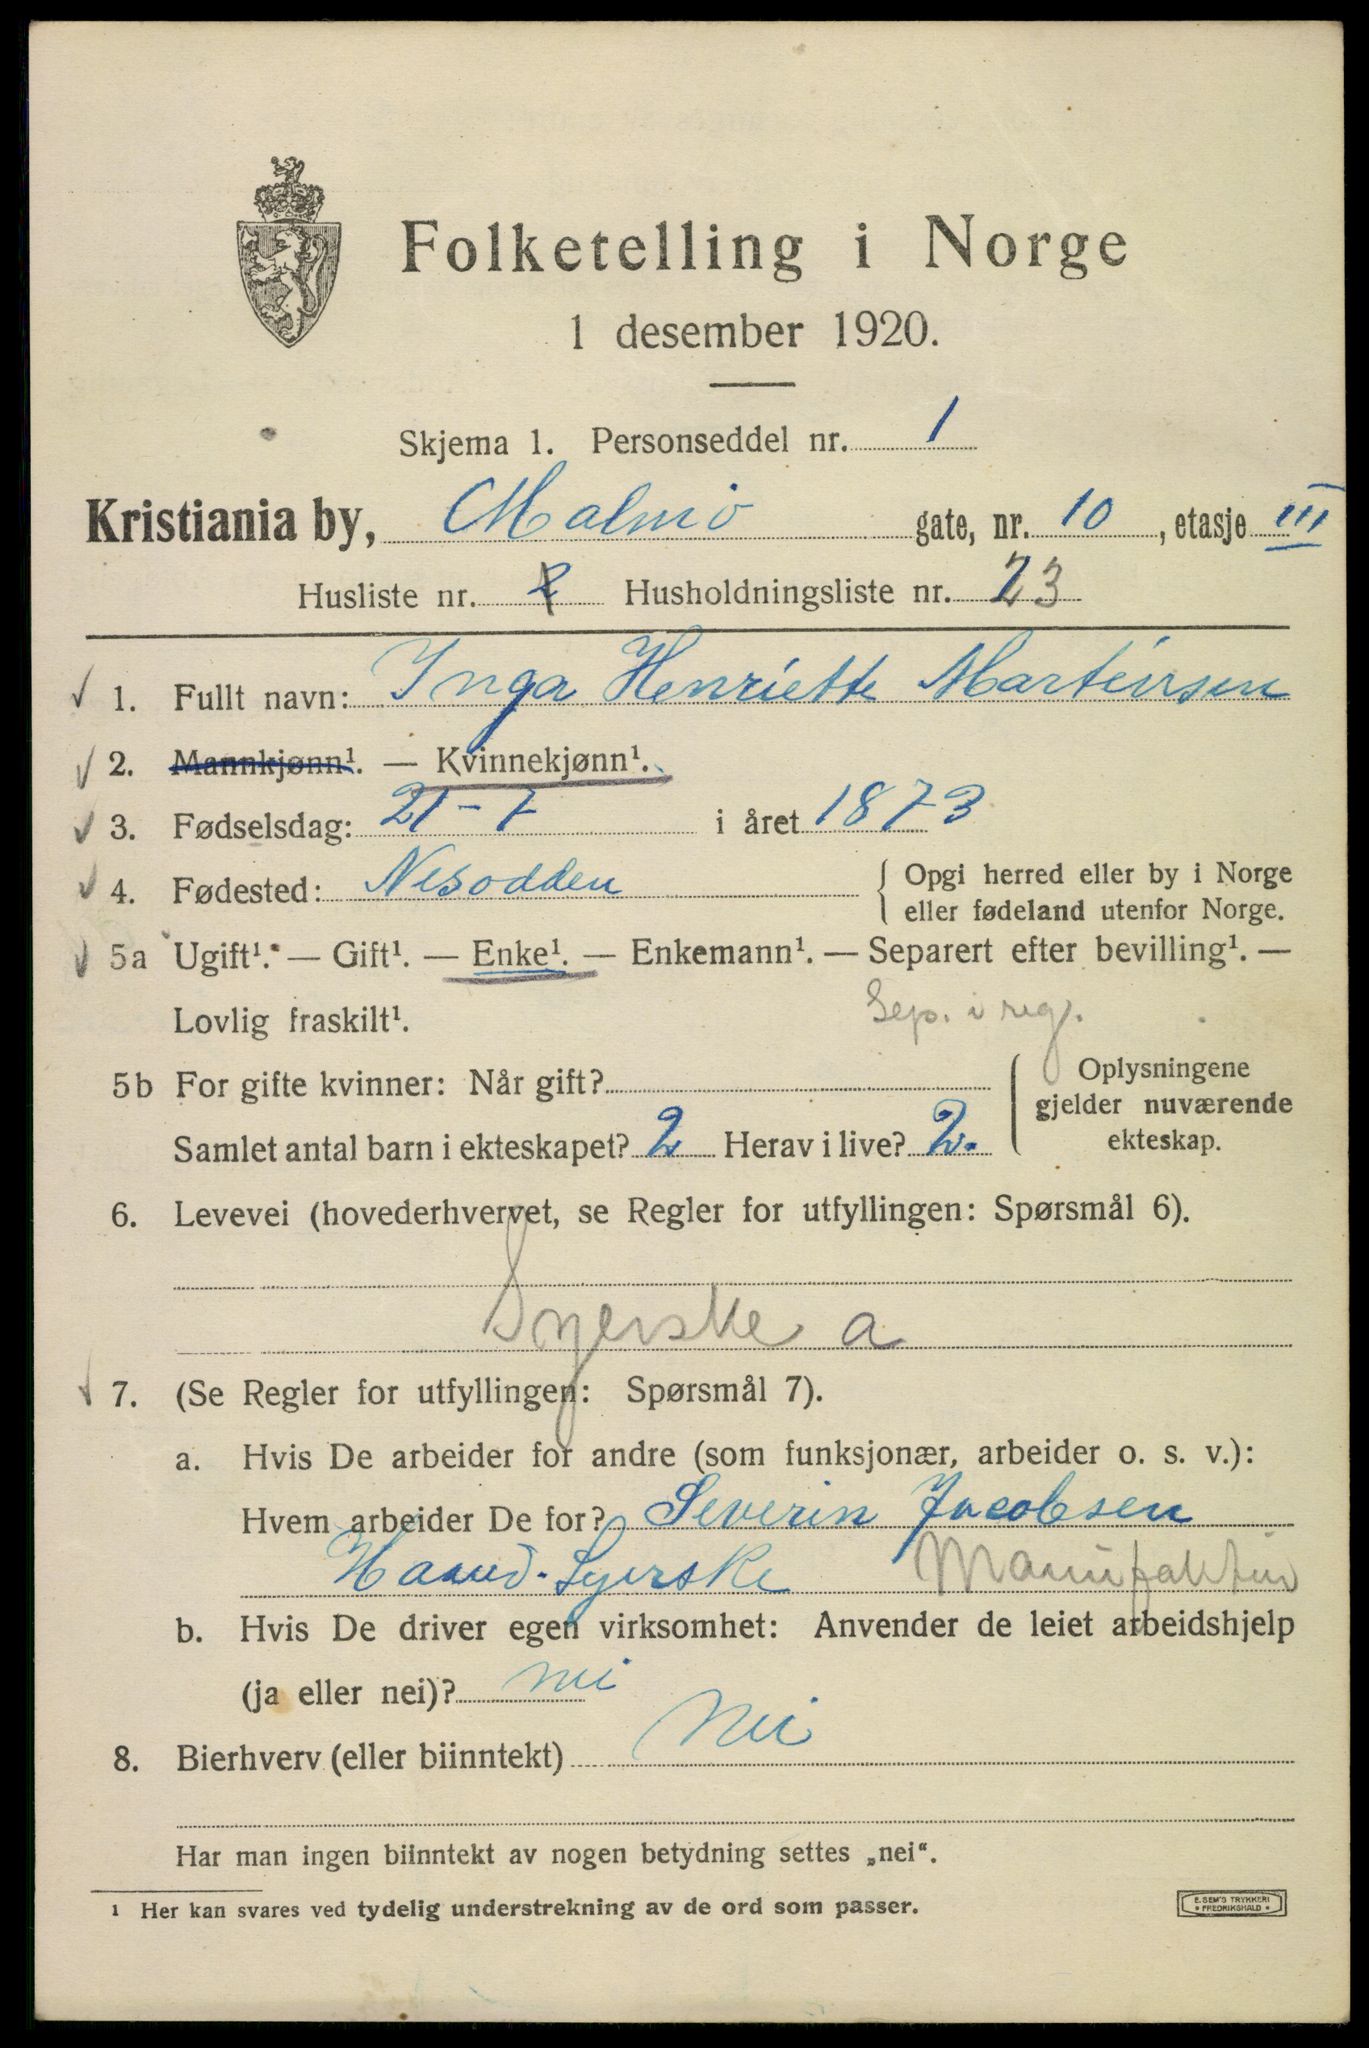 Folketelling i Norge
1 desember 1920.
Skjema 1. Personseddel nr. 1
Kristiania by, Malmö gate, nr. 10, etasje III
Husliste nr. 2 Husholdningsliste nr. 23
1. Fullt navn: Inga Henriette Martinsen
2. Mannkjønn¹. — Kvinnekjønn¹.
3. Fødselsdag: 21-7 i året 1873
4. Fødested: Nesodden { Opgi herred eller by i Norge
eller fødeland utenfor Norge.
5a Ugift¹. — Gift¹. — Enke¹. — Enkemann¹. — Separert efter bevilling¹. —
Lovlig fraskilt¹. Sep. i reg.
5b For gifte kvinner: Når gift? { Oplysningene
gjelder nuværende
Samlet antal barn i ekteskapet? 2 Herav i live? 2. ekteskap.
6. Levevei (hovederhvervet, se Regler for utfyllingen: Spørsmål 6).
Syerske a
7. (Se Regler for utfyllingen: Spørsmål 7).
a. Hvis De arbeider for andre (som funksjonær, arbeider o. s. v.):
Hvem arbeider De for? Severin Jacobsen
Haand-Syerske Manufaktur
b. Hvis De driver egen virksomhet: Anvender de leiet arbeidshjelp
(ja eller nei)? nei
8. Bierhverv (eller biinntekt) Nei
Har man ingen biinntekt av nogen betydning settes „nei“.
1 Her kan svares ved tydelig understrekning av de ord som passer.
E. SEM'S TRYKKERI
FREDRIKSHALD